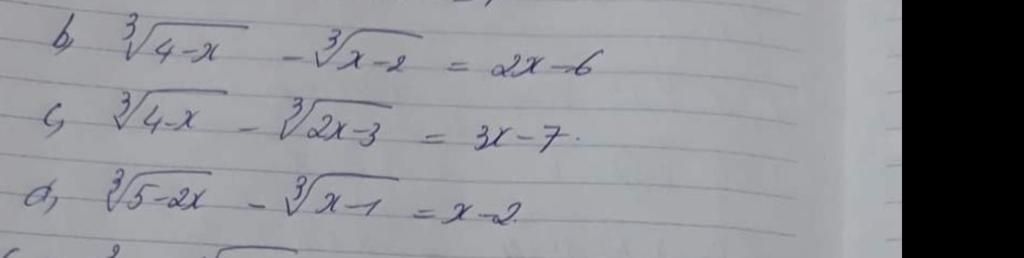 b, ∛(4-x) - ∛(x-2) = 2x-6
c, ∛(4-x) - ∛(2x-3) = 3x-7.
d, ∛(5-2x) - ∛(x-1) = x-2.